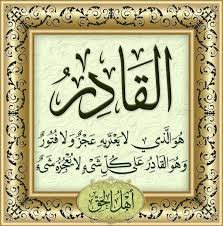 القَادِرُ
هُوَ الَّذِي لَا يَعْتَرِيهِ عَجْزٌ وَلَا فُتُورٌ
وَهُوَ القَادِرُ عَلَى كُلِّ شَيْءٍ لَا يُعْجِزُهُ شَيْءٌ
أهل الحق